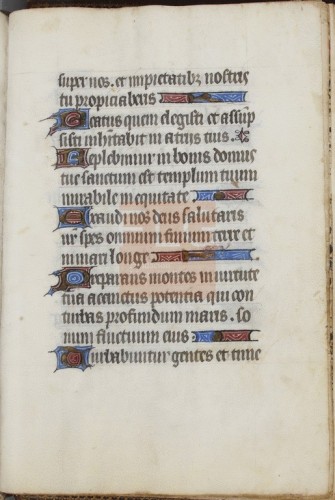 super nos. et impietatibz nostris
tu propiciaberis
Beatus quem elegisti et assūp
sisti inhītabit in atriis tuis.
Replebimur in bonis domus
tue sanctum est templum tuum
mirabile in equitate
Exaudi nos deus salutaris
nr̄ spes omnium finium terre et
in mari longe
Preparans montes in uirtute
tua accinctus potentia qui con
turbas profundum maris. so
num fluctuum eius
Turbabuntur gentes et time